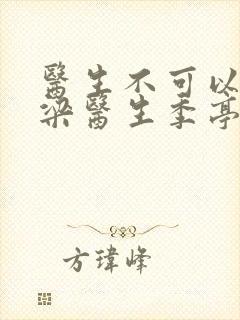 醫生不可以
梁醫生季亭
方瑋峰